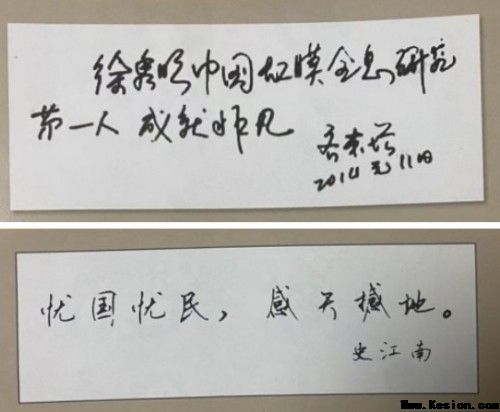 徐秀明中国虹膜全息研究
第一人 成就非凡
2014元11日
忧国忧民，感天撼地。
史江南
Www.Kesion.com